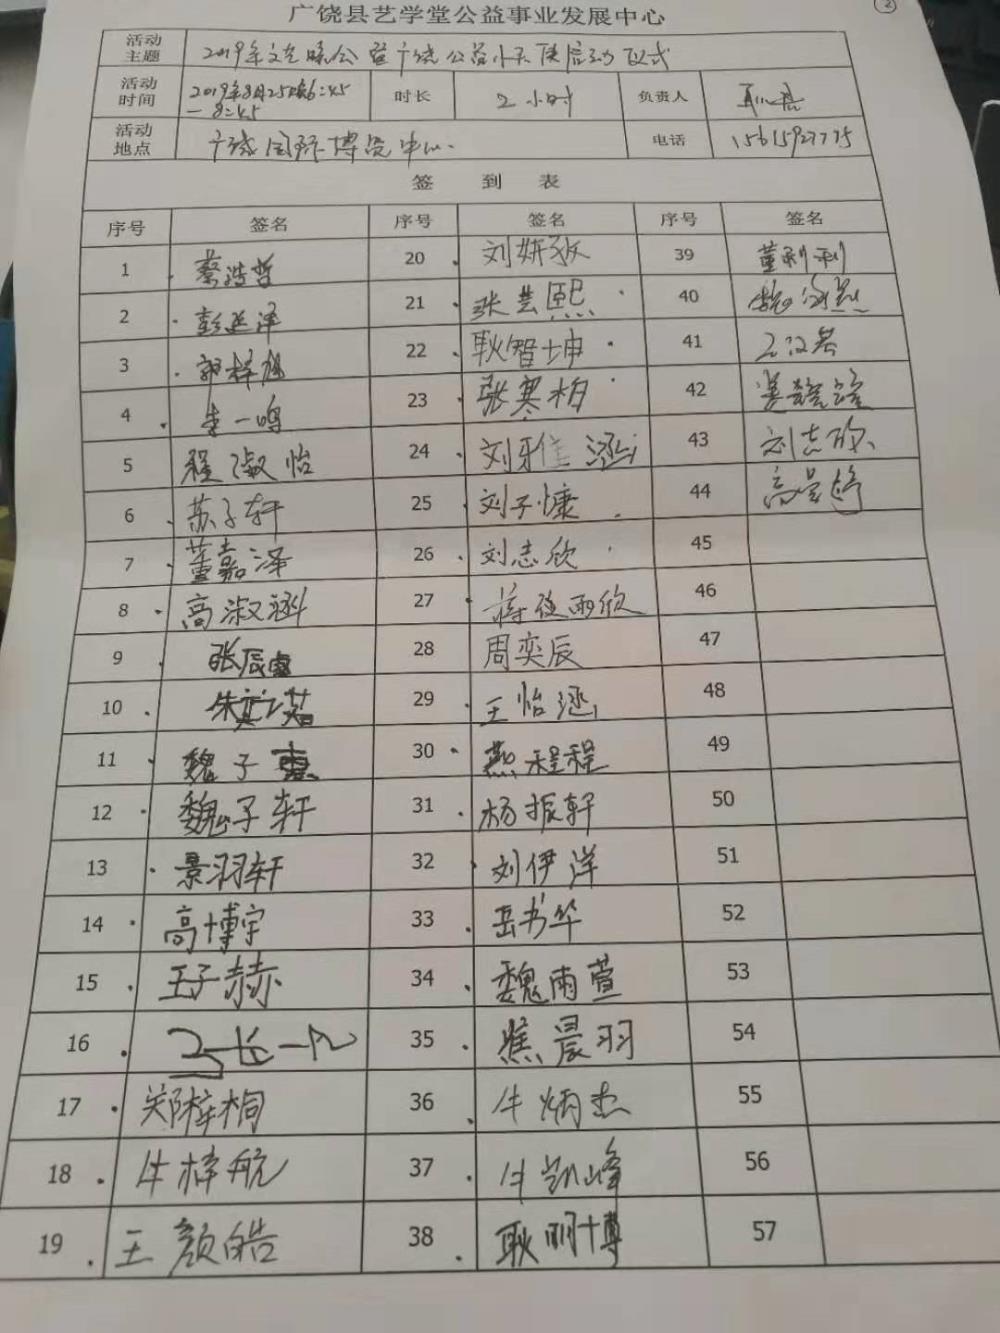 ②
广饶县艺学堂公益事业发展中心
活动主题 2019年文艺晚会暨广饶公益小天使启动仪式
活动时间 2019年8月25日晚6:45 — 8:45 时长 2小时 负责人
活动地点 广饶国际博览中心. 电话 15615927775
签 到 表
序号 签名 序号 签名 序号 签名
1 蔡浩哲 20 刘妍孜 39 董利利
2 彭延泽 21 张芸熙 40
3 郭梓旭 22 耿智坤 41
4 李一鸣 23 张寒柏 42
5 程淑怡 24 刘雅涵 43 刘志欣
6 苏子轩 25 刘子慷 44
7 董嘉泽 26 刘志欣 45
8 高淑涵 27 46
9 张辰 28 周奕辰 47
10 朱 29 王怡涵 48
11 魏子惠 30 燕程程 49
12 魏子轩 31 杨振轩 50
13 景羽轩 32 刘伊洋 51
14 高博宇 33 岳书华 52
15 王子赫 34 魏雨萱 53
16 35 焦晨羽 54
17 郑梓桐 36 牛炳杰 55
18 牛梓航 37 牛凯峰 56
19 王颜皓 38 耿明博 57